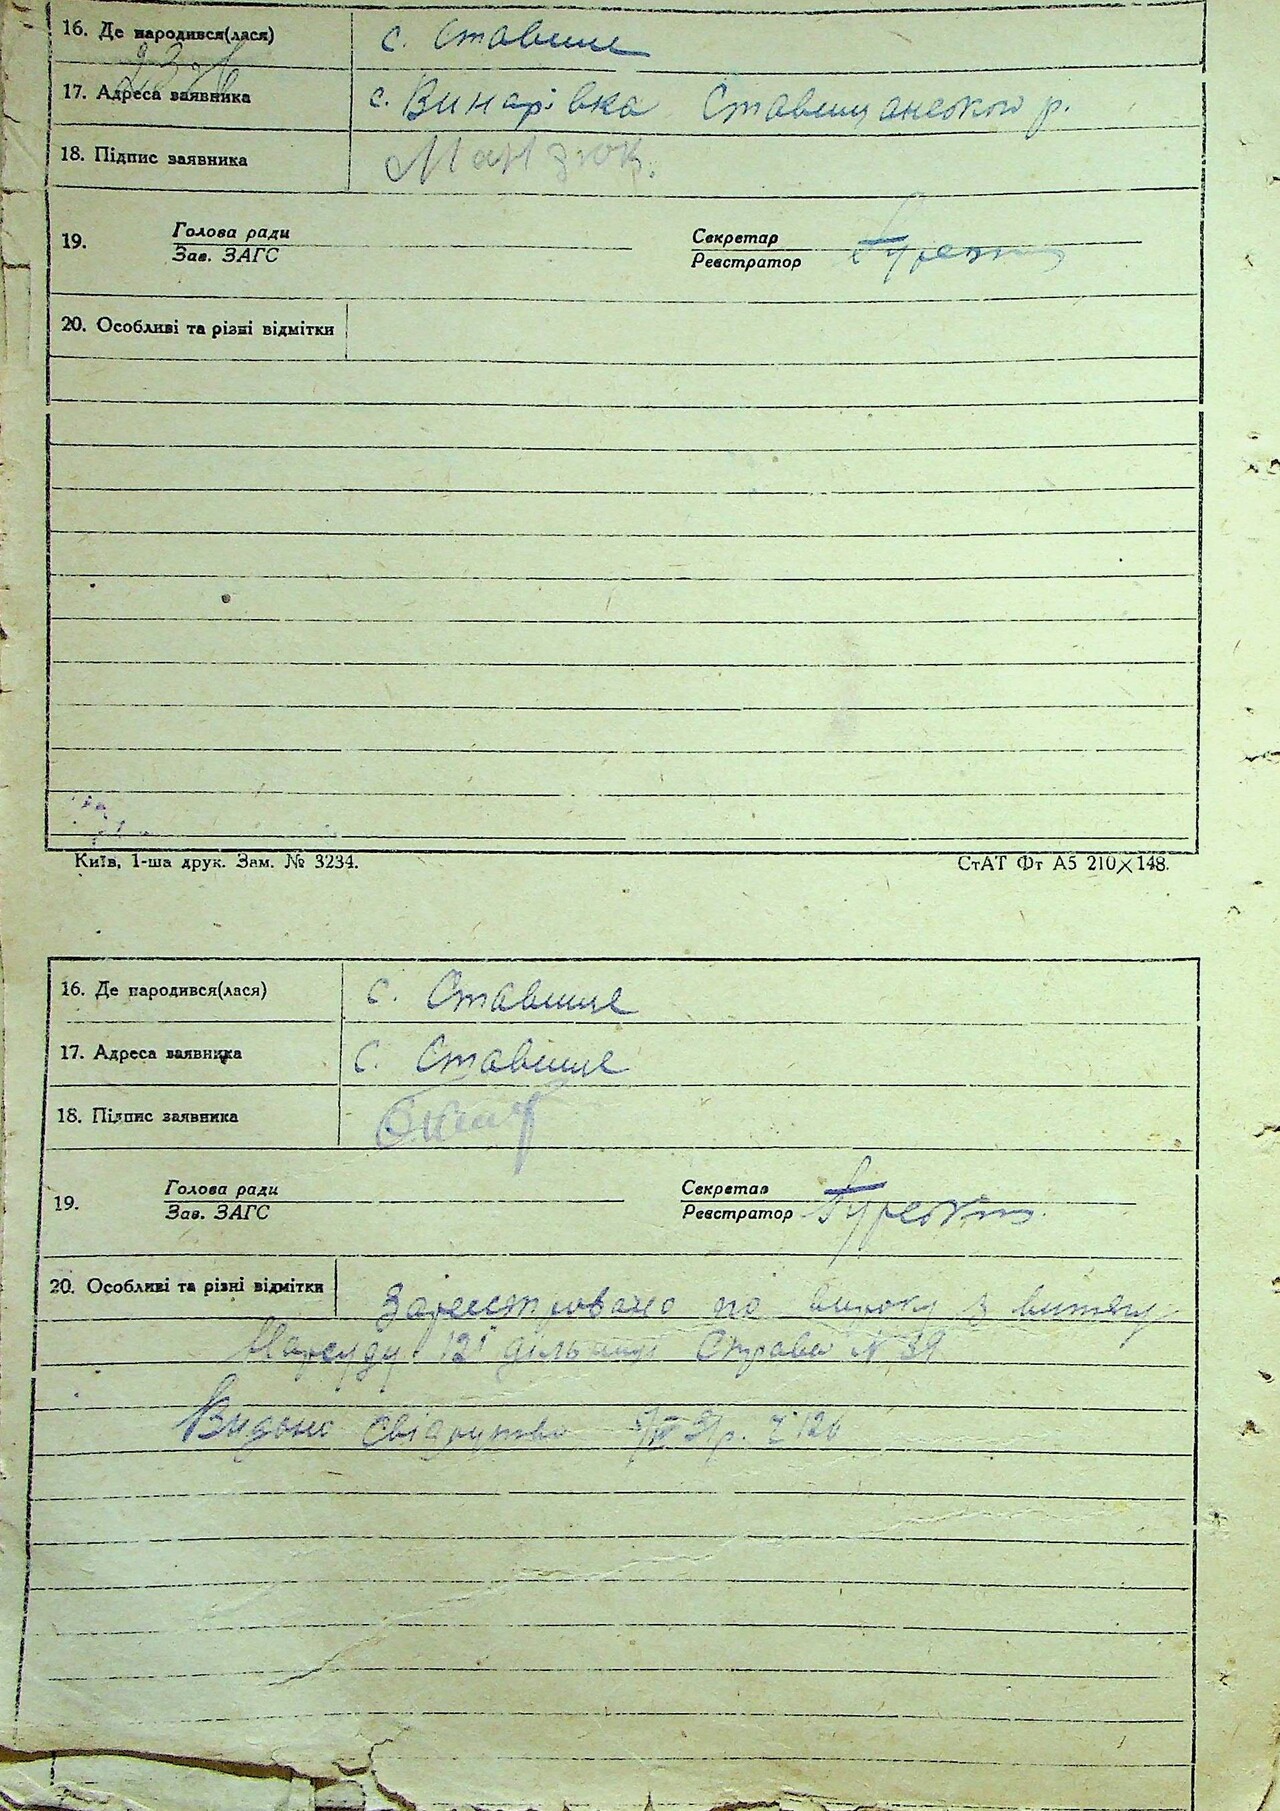 16. Де народився(лася) с. Ставище
17. Адреса заявника с. Винарівка Ставищанского р.
18. Підпис заявника Манзюк.
19. Голова ради Секретар
Зав. ЗАГС Реєстратор
20. Особливі та різні відмітки
Київ, 1-ша друк. Зам. № 3234. СтАТ Фт А5 210×148.
16. Де народився(лася) с. Ставище
17. Адреса заявника с. Ставище
18. Підпис заявника
19. Голова ради Секретар
Зав. ЗАГС Реєстратор
20. Особливі та різні відмітки Зареєстровано по вироку з витягу
Нарсуду 12 дільниці Справа № 39
Видано свідоцтво